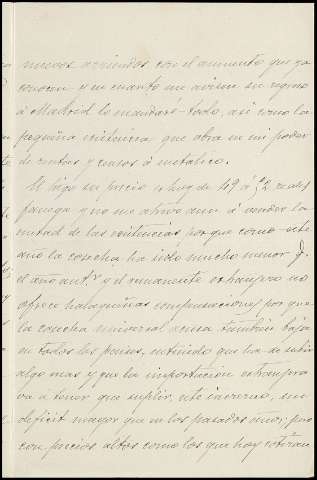 nuevos arriendos con el aumento que ya
conocen y en cuanto me avisen su regreso
á Madrid lo mandaré todo, así como la
pequeña existencia que obra en mi poder
de rentas y censos á metálico.
El trigo su precio es hoy de 49 á 52 reales
fanega y no me atrevo aun á vender la
mitad de las existencias porque como este
año la cosecha ha sido mucho menor q.
el año antr. y el remanente extrangero no
ofrece halagüeñas compensaciones por que
la cosecha universal acusa tambien baja
en todos los paises, entiendo que ha de subir
algo mas y que la importacion extrangera
va á tener que suplir, este invierno, un
deficit mayor que en los pasados años, pero
con precios altos como los que hoy cotizan